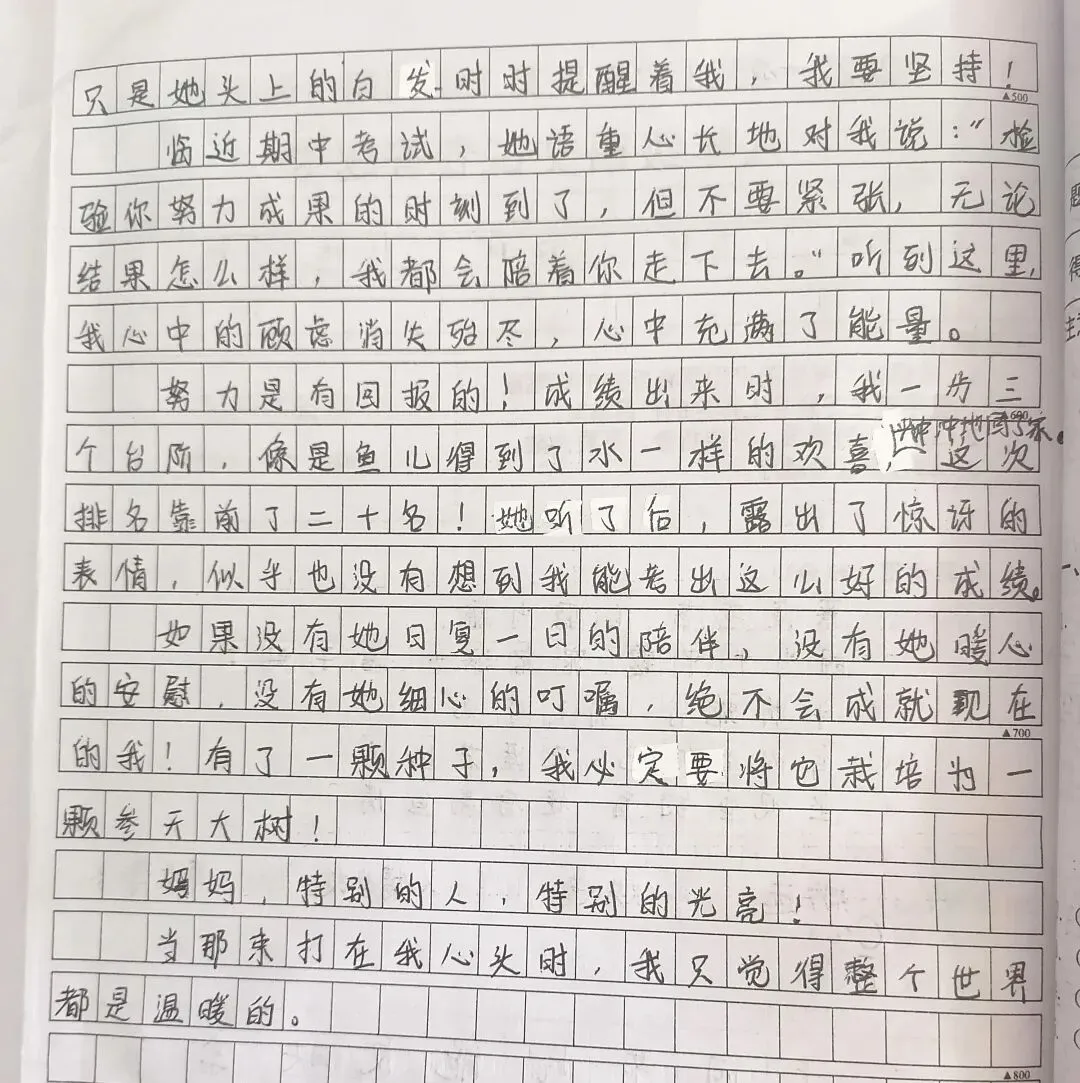 只是她头上的白发时时提醒着我，我要坚持！
▲500
临近期中考试，她语重心长地对我说：“检
验你努力成果的时刻到了，但不要紧张，无论
结果怎么样，我都会陪着你走下去。”听到这里，
我心中的顾虑消失殆尽，心中充满了能量。
努力是有回报的！成绩出来时，我一步三
▲600
个台阶，像是鱼儿得到了水一样的欢喜，兴冲冲地回了家。这次
排名靠前了二十名！她听了后，露出了惊讶的
表情，似乎也没有想到我能考出这么好的成绩。
如果没有她日复一日的陪伴，没有她暖心
的安慰，没有她细心的叮嘱，绝不会成就现在
▲700
的我！有了一颗种子，我必定要将它栽培为一
颗参天大树！
妈妈，特别的人，特别的光亮！
当那束打在我心头时，我只觉得整个世界
都是温暖的。
▲800